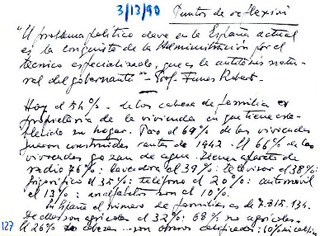 3/13/90 Puntos de reflexión
"El problema político clave en la España actual
es la conquista de la Administración por el
técnico especializado, que es la antítesis natu-
ral del gobernante" — Prof. Funes Robert.
Hoy el 54% de los cabezas de familia es
propietaria de la vivienda en que tiene esta-
blecido su hogar. Pero el 69% de las viviendas
fueron construidas antes de 1942. El 66% de las
viviendas gozan de agua. Tienen aparato de
radio 76%: lavadora el 39%: televisor el 38%:
frigorífico el 35%: teléfono el 20%: automóvil
el 13%: analfabetos son el 10%.
En España el número de familias es de 7.815.134.
De ellas son agrícolas el 32%: 68% no agrícolas.
El 26% de cabezas son obreros
127